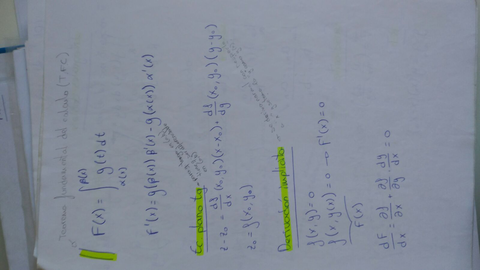 Teorema fundamental del cálculo (T.F.C)
F(x) = ∫_{α(x)}^{β(x)} g(t) dt
F'(x) = g(β(x)) β'(x) - g(α(x)) α'(x)
Ec plano tg
z - z₀ = df/dx (x₀, y₀)(x - x₀) + df/dy (x₀, y₀)(y - y₀)
z₀ = f(x₀, y₀)
Derivación implícita
f(x, y) = 0
f(x, y(x)) = 0 → F'(x) = 0
F(x)
dF/dx = ∂f/∂x + ∂f/∂y · dy/dx = 0